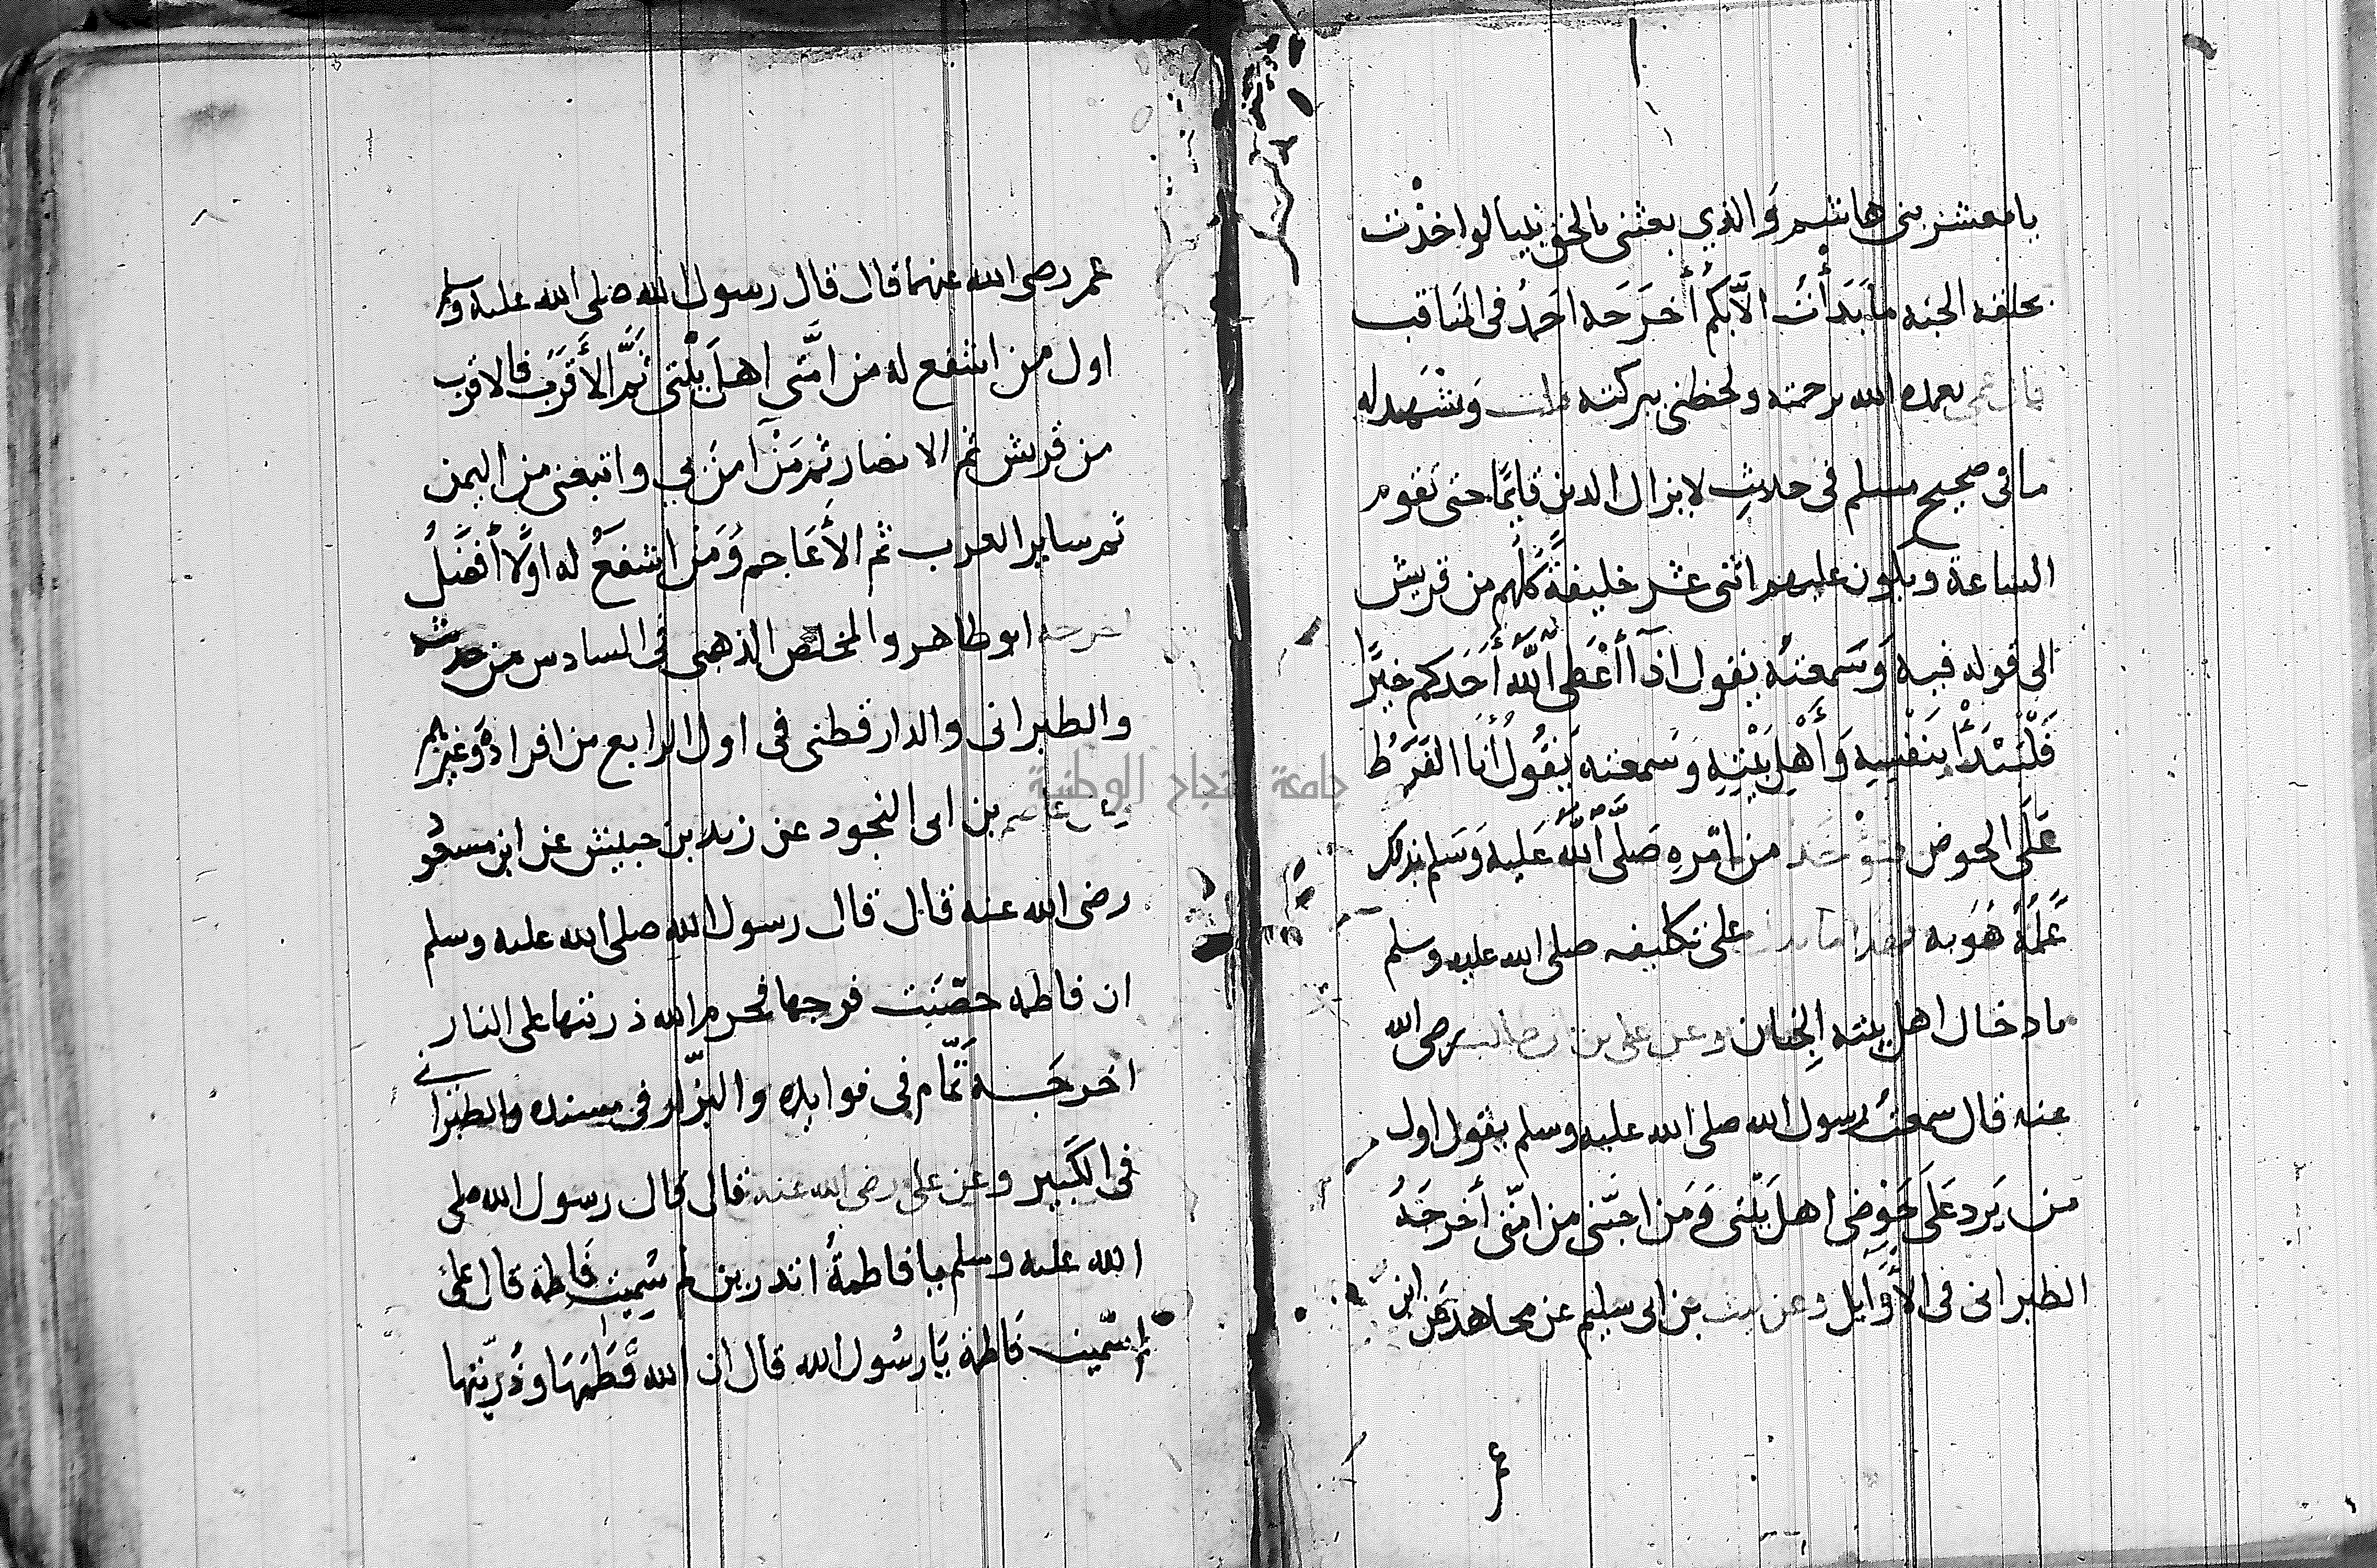 يا معشر بني هاشم وَالذي بعثني بالحق نبيا لو اخذْت
بحلقه الجنه ما بَدَأْتُ الاّ بكُم أخرَجَه احَمدُ في المَناقب
قال عمى تغمده الله برحمته ولحظني ببركته وَيشْهَد له
ما في صحيح مسلم في حديثِ لا يزال الدين قايمًا حتى تقوم
الساعة ويكون عليهم اثنى عشر خليفةً كُلُهم من قريش
الى قوله فيه وَسَمعتُه يقول اذَا أَعْطى اللَّهُ أَحَدكم خيرًا
فَلْيَبْدَأْ بِنَفْسِهِ وَأَهْلِ بَيْتِهِ وَسَمعته يَقُولُ أنا الفَرَطُ
عَلَى الحوض من امره صَلَّى اللَّهُ عَليه وَسَلم بذلك
على تكليفه صلى الله عليه وسلم
بادخال اهل بيته الجِنان وعن على بن ابى طالب رضى الله
عنه قال سمعتُ رسول الله صلى الله عليه وسلم يقول اول
من يَرد عَلَى حَوْضِى اهل بَيْتى وَمَن احبّنى من امّتى أخرجَهُ
الطبرانى فى الأَوَايل وعن ليث بن ابى سليم عن مجاهد عَن ابن
عمر
عمر رضى الله عنهما قال قال رسول الله صلى الله عليه وسلم
اول من اشفع له من امَّتى اهل بَيْتى ثمَّ الأَقرَبَ فالاقرب
من قريش ثم الانصار ثم مَنْ امنَ بي واتبعنى من اليمن
ثم ساير العرب ثم الأَعَاجم وَمَنْ اشفعُ له اوّلًا أفضَلُ
اخرجه ابو طاهر والمخلص الذهبى فى السادس من حديثه
والطبرانى والدارقطنى فى اول الرابع من افراده وَغيرهم
عاصم بن ابى النجود عن زيد بن حبيش عن ابن مسعود
رضى الله عنه قال قال رسول الله صلى الله عليه وسلم
ان فاطمه حصّنَت فرجها فحرم الله ذريتها على النار
اخرجَه تمَّام فى فوايده والبزّار فى مسنده والطبرانى
فى الكَبير وعن على رضى الله عنه قال قال رسول الله صلى
الله عليه وسلم يا فاطمةُ اتدرين لم سُمِيت فَاطمة قال علىّ
لم سمّيت فَاطمة يَا رسُول الله قال ان الله فَطَمَهَا وَذُرِّيّتها
جامعة النجاح الوطنية